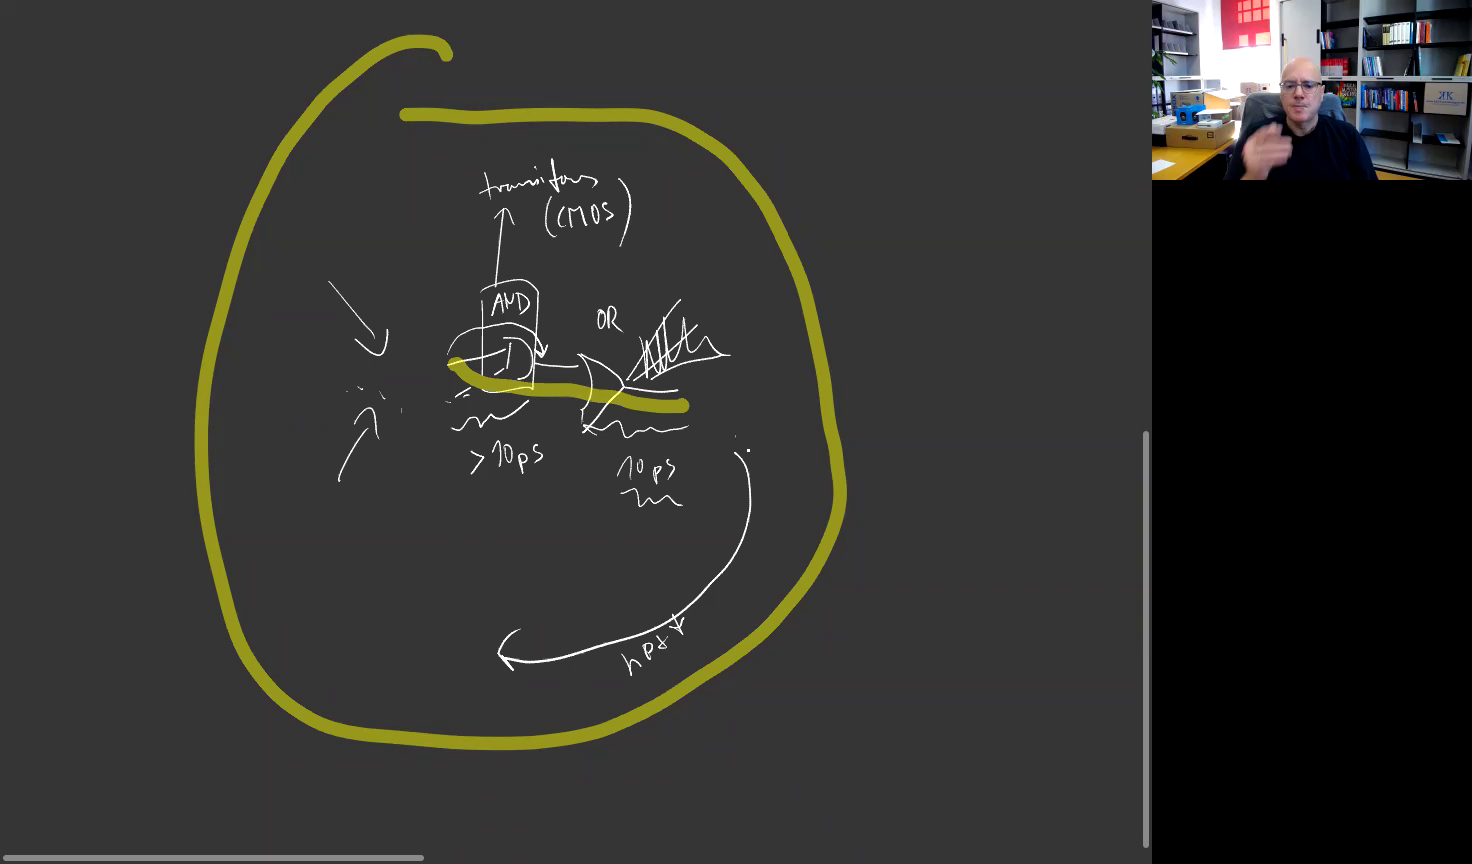 transistors
(CMOS)
AND
OR
>10ps
10ps
next